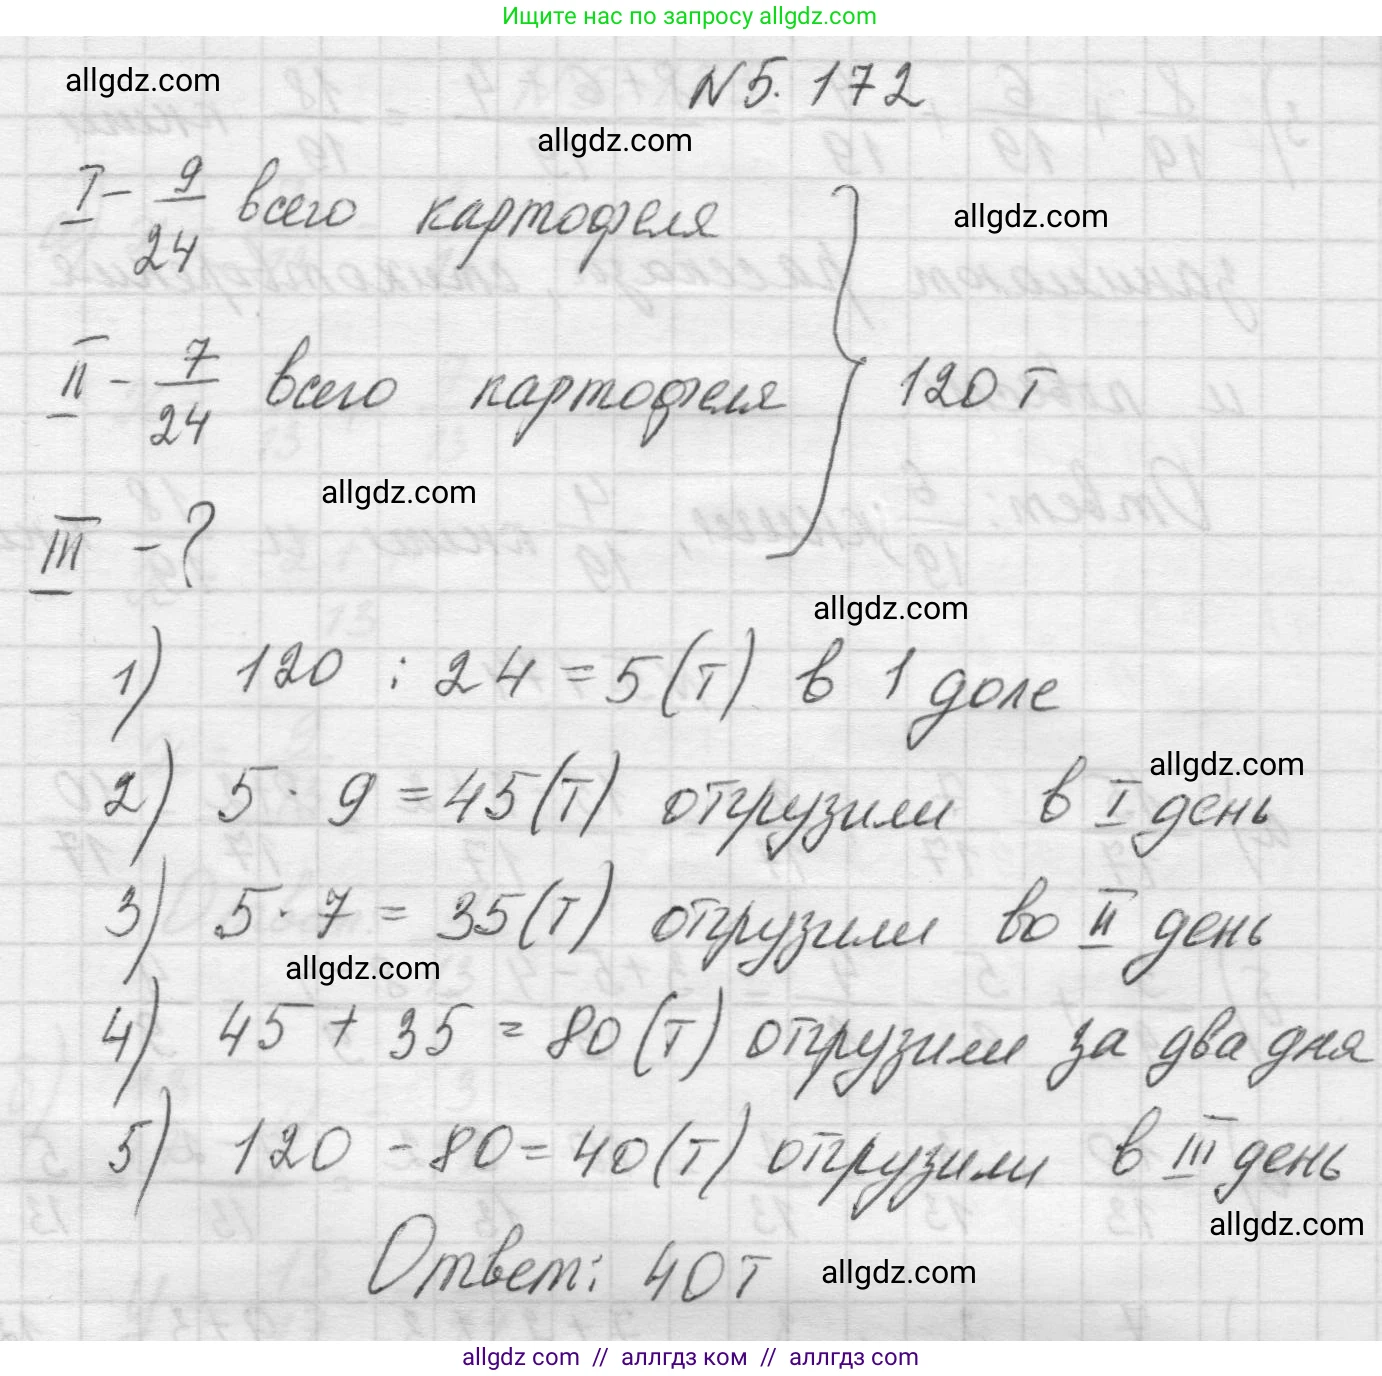 Ищите нас по запросу allgdz.com
allgdz.com
N 5. 172
allgdz.com
I - 9/24 всего картофеля
allgdz.com
II - 7/24 всего картофеля
120 т
allgdz.com
III - ?
allgdz.com
1) 120 : 24 = 5 (т) в 1 доле
allgdz.com
2) 5 · 9 = 45 (т) отгрузили в I день
3) 5 · 7 = 35 (т) отгрузили во II день
allgdz.com
4) 45 + 35 = 80 (т) отгрузили за два дня
5) 120 - 80 = 40 (т) отгрузили в III день
allgdz.com
Ответ: 40 т
allgdz.com
allgdz com // аллгдз ком // allgdz.com